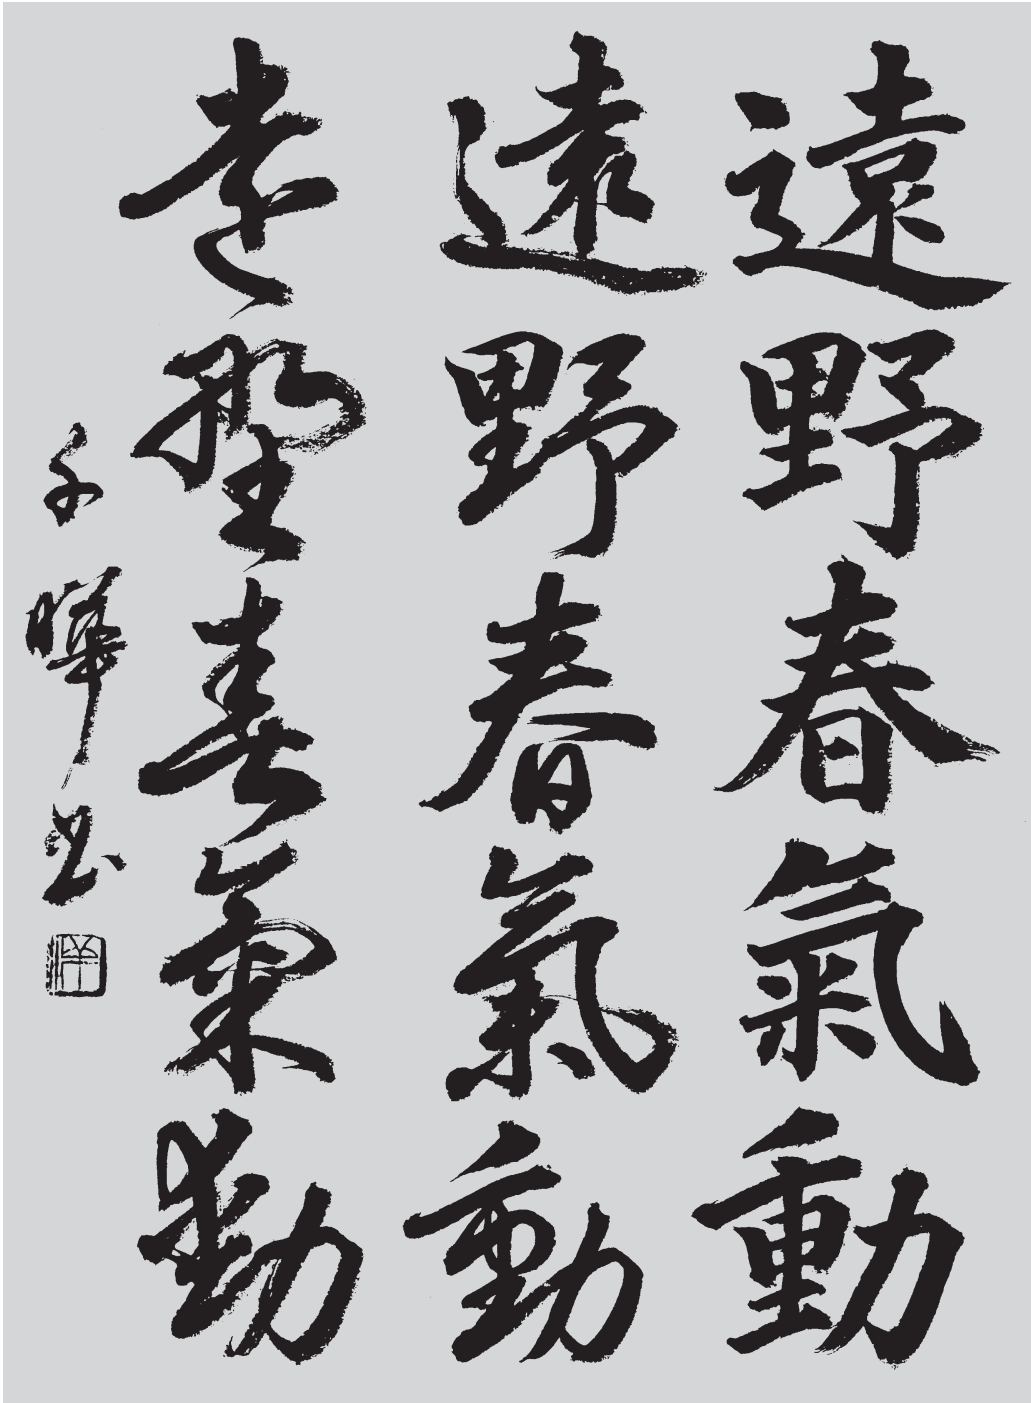 遠野春氣動
遠野春氣動
遠野春氣動
千曄書